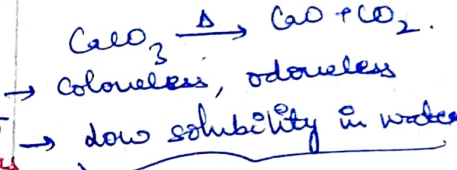 CaCO₃ —Δ→ CaO + CO₂.
→ Colourless, odourless
→ Low solubility in water